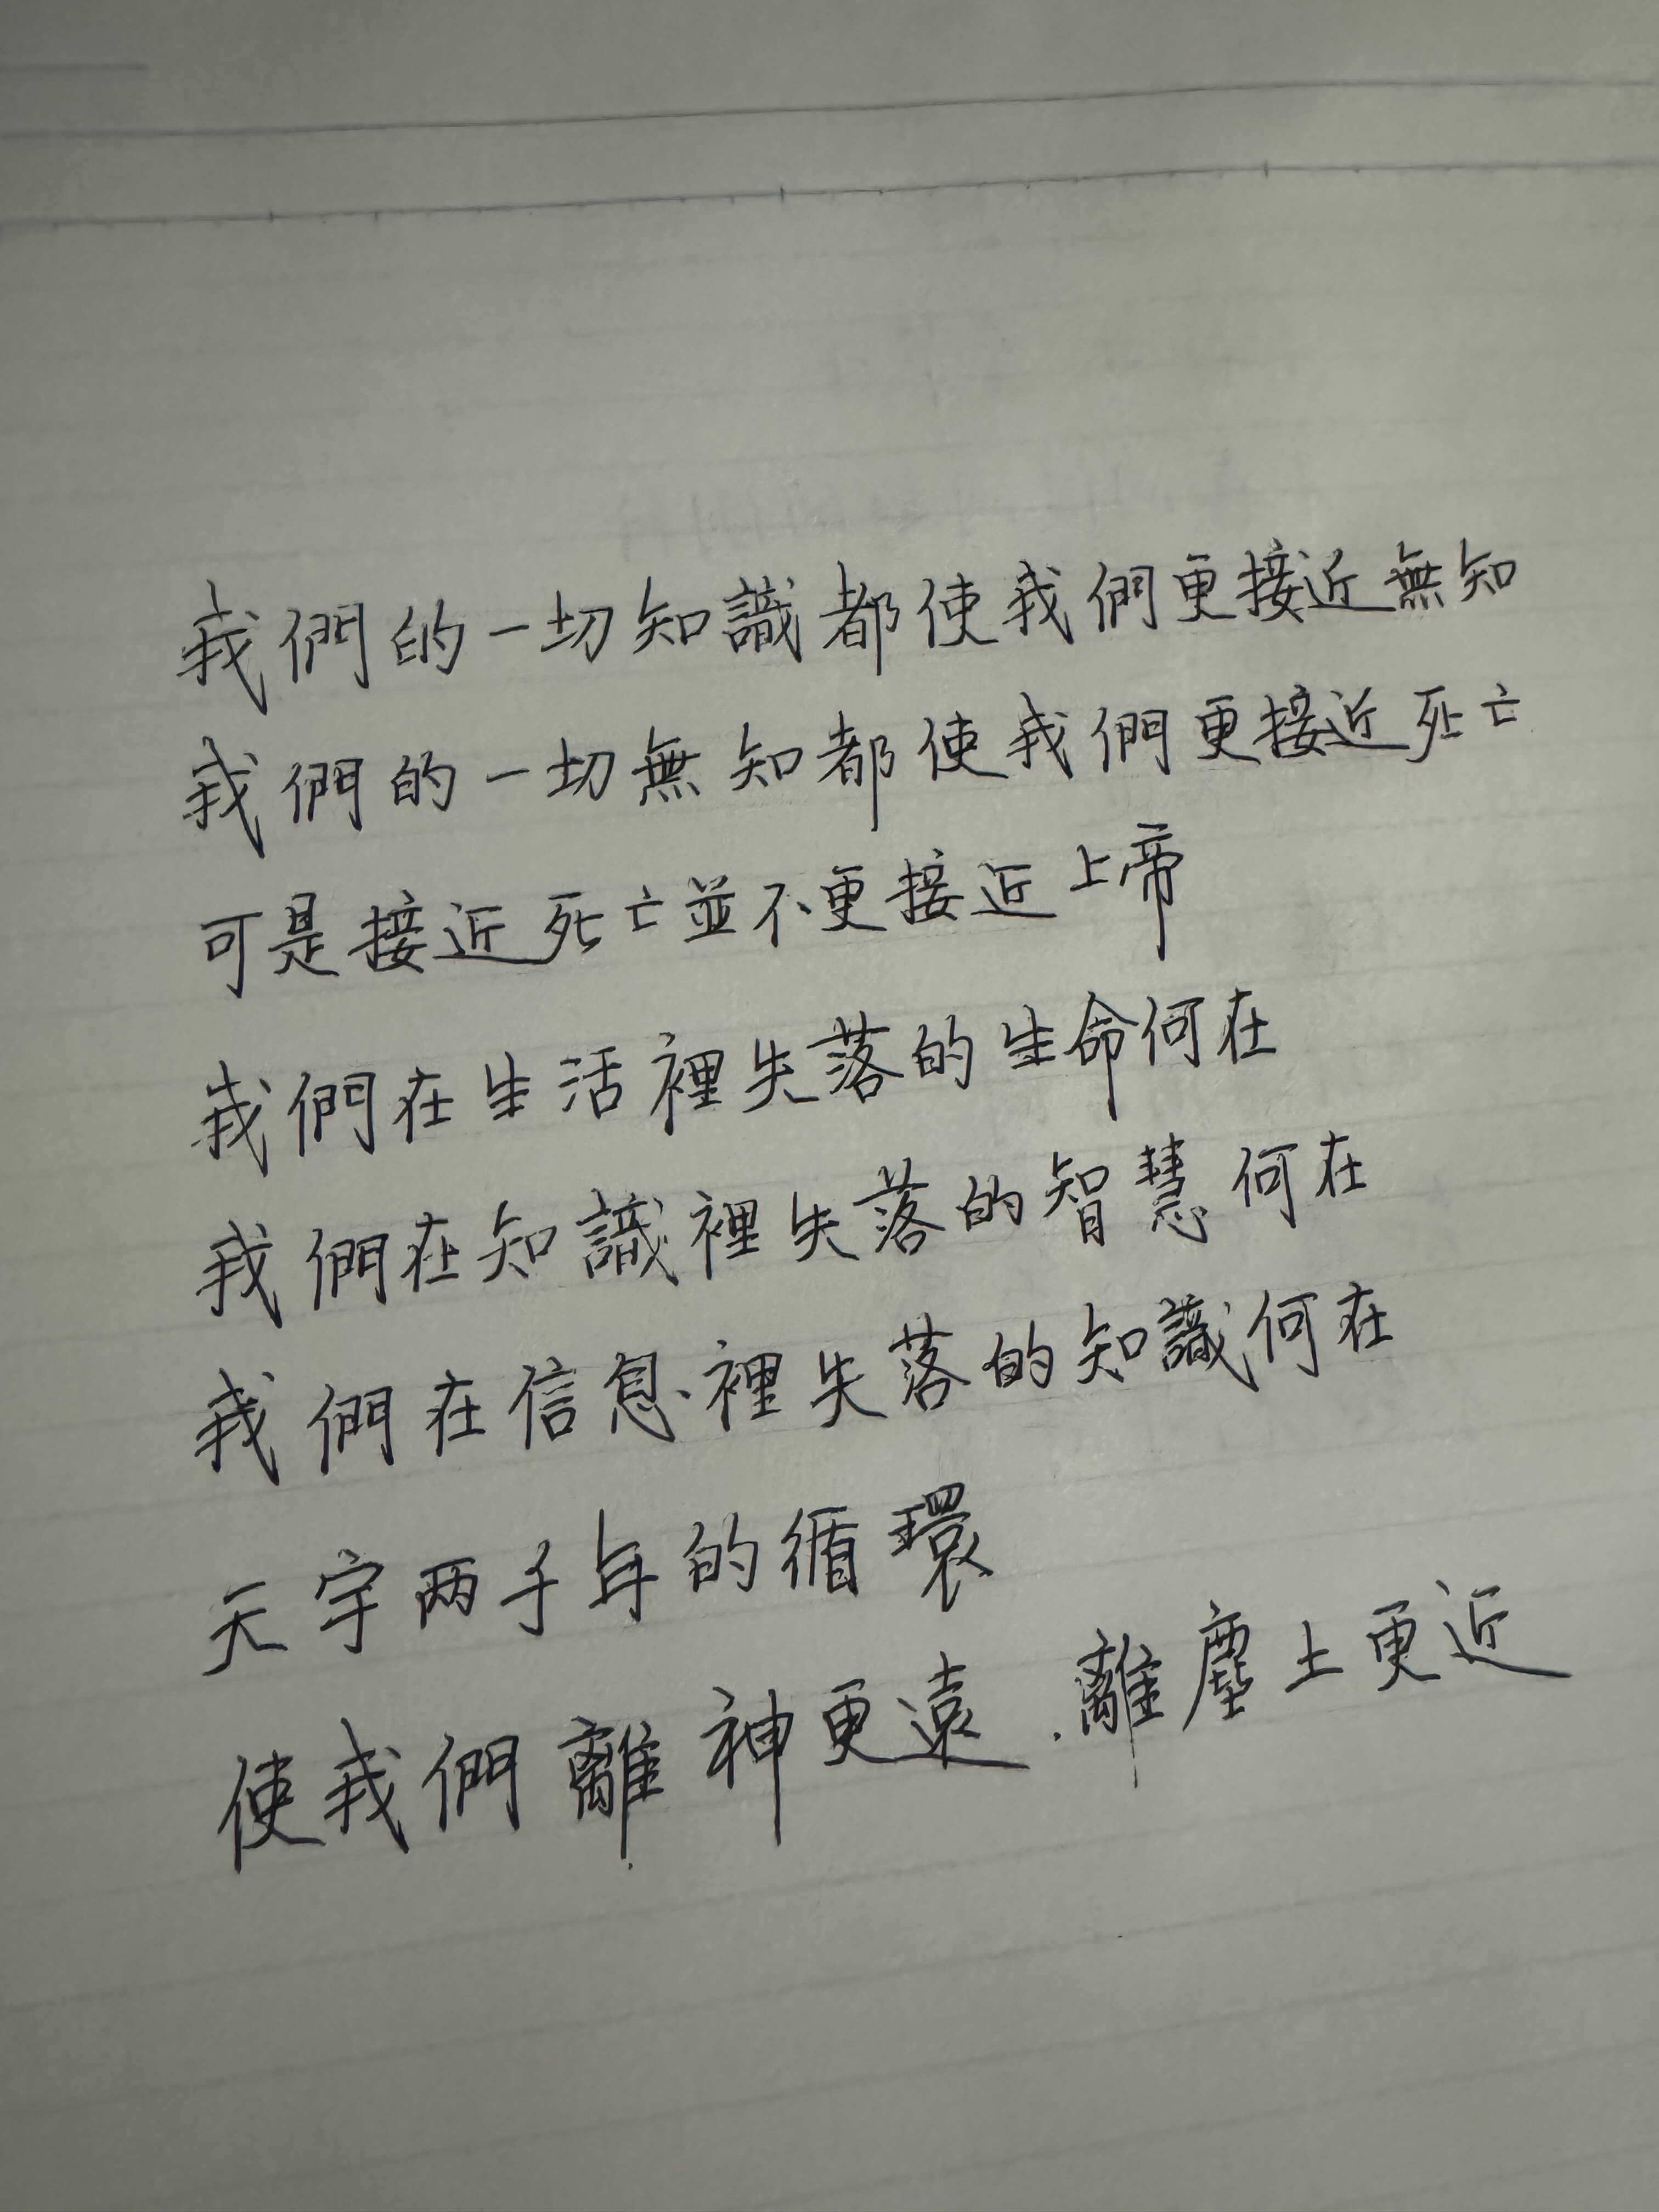 我們的一切知識都使我們更接近無知
我們的一切無知都使我們更接近死亡
可是接近死亡並不更接近上帝
我們在生活裡失落的生命何在
我們在知識裡失落的智慧何在
我們在信息裡失落的知識何在
天宇两千年的循環
使我們離神更遠.離塵土更近